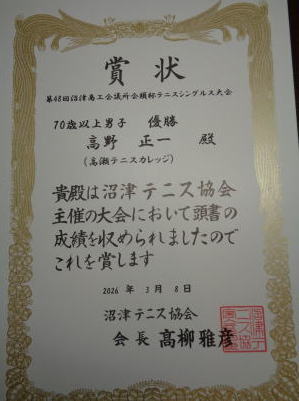 賞状
第48回沼津商工会議所会頭杯テニスシングルス大会
70歳以上男子 優勝
高野 正一 殿
(高瀬テニスカレッジ)
貴殿は沼津テニス協会
主催の大会において頭書の
成績を収められましたので
これを賞します
2026 年 3 月 8 日
沼津テニス協会
会長 高柳雅彦